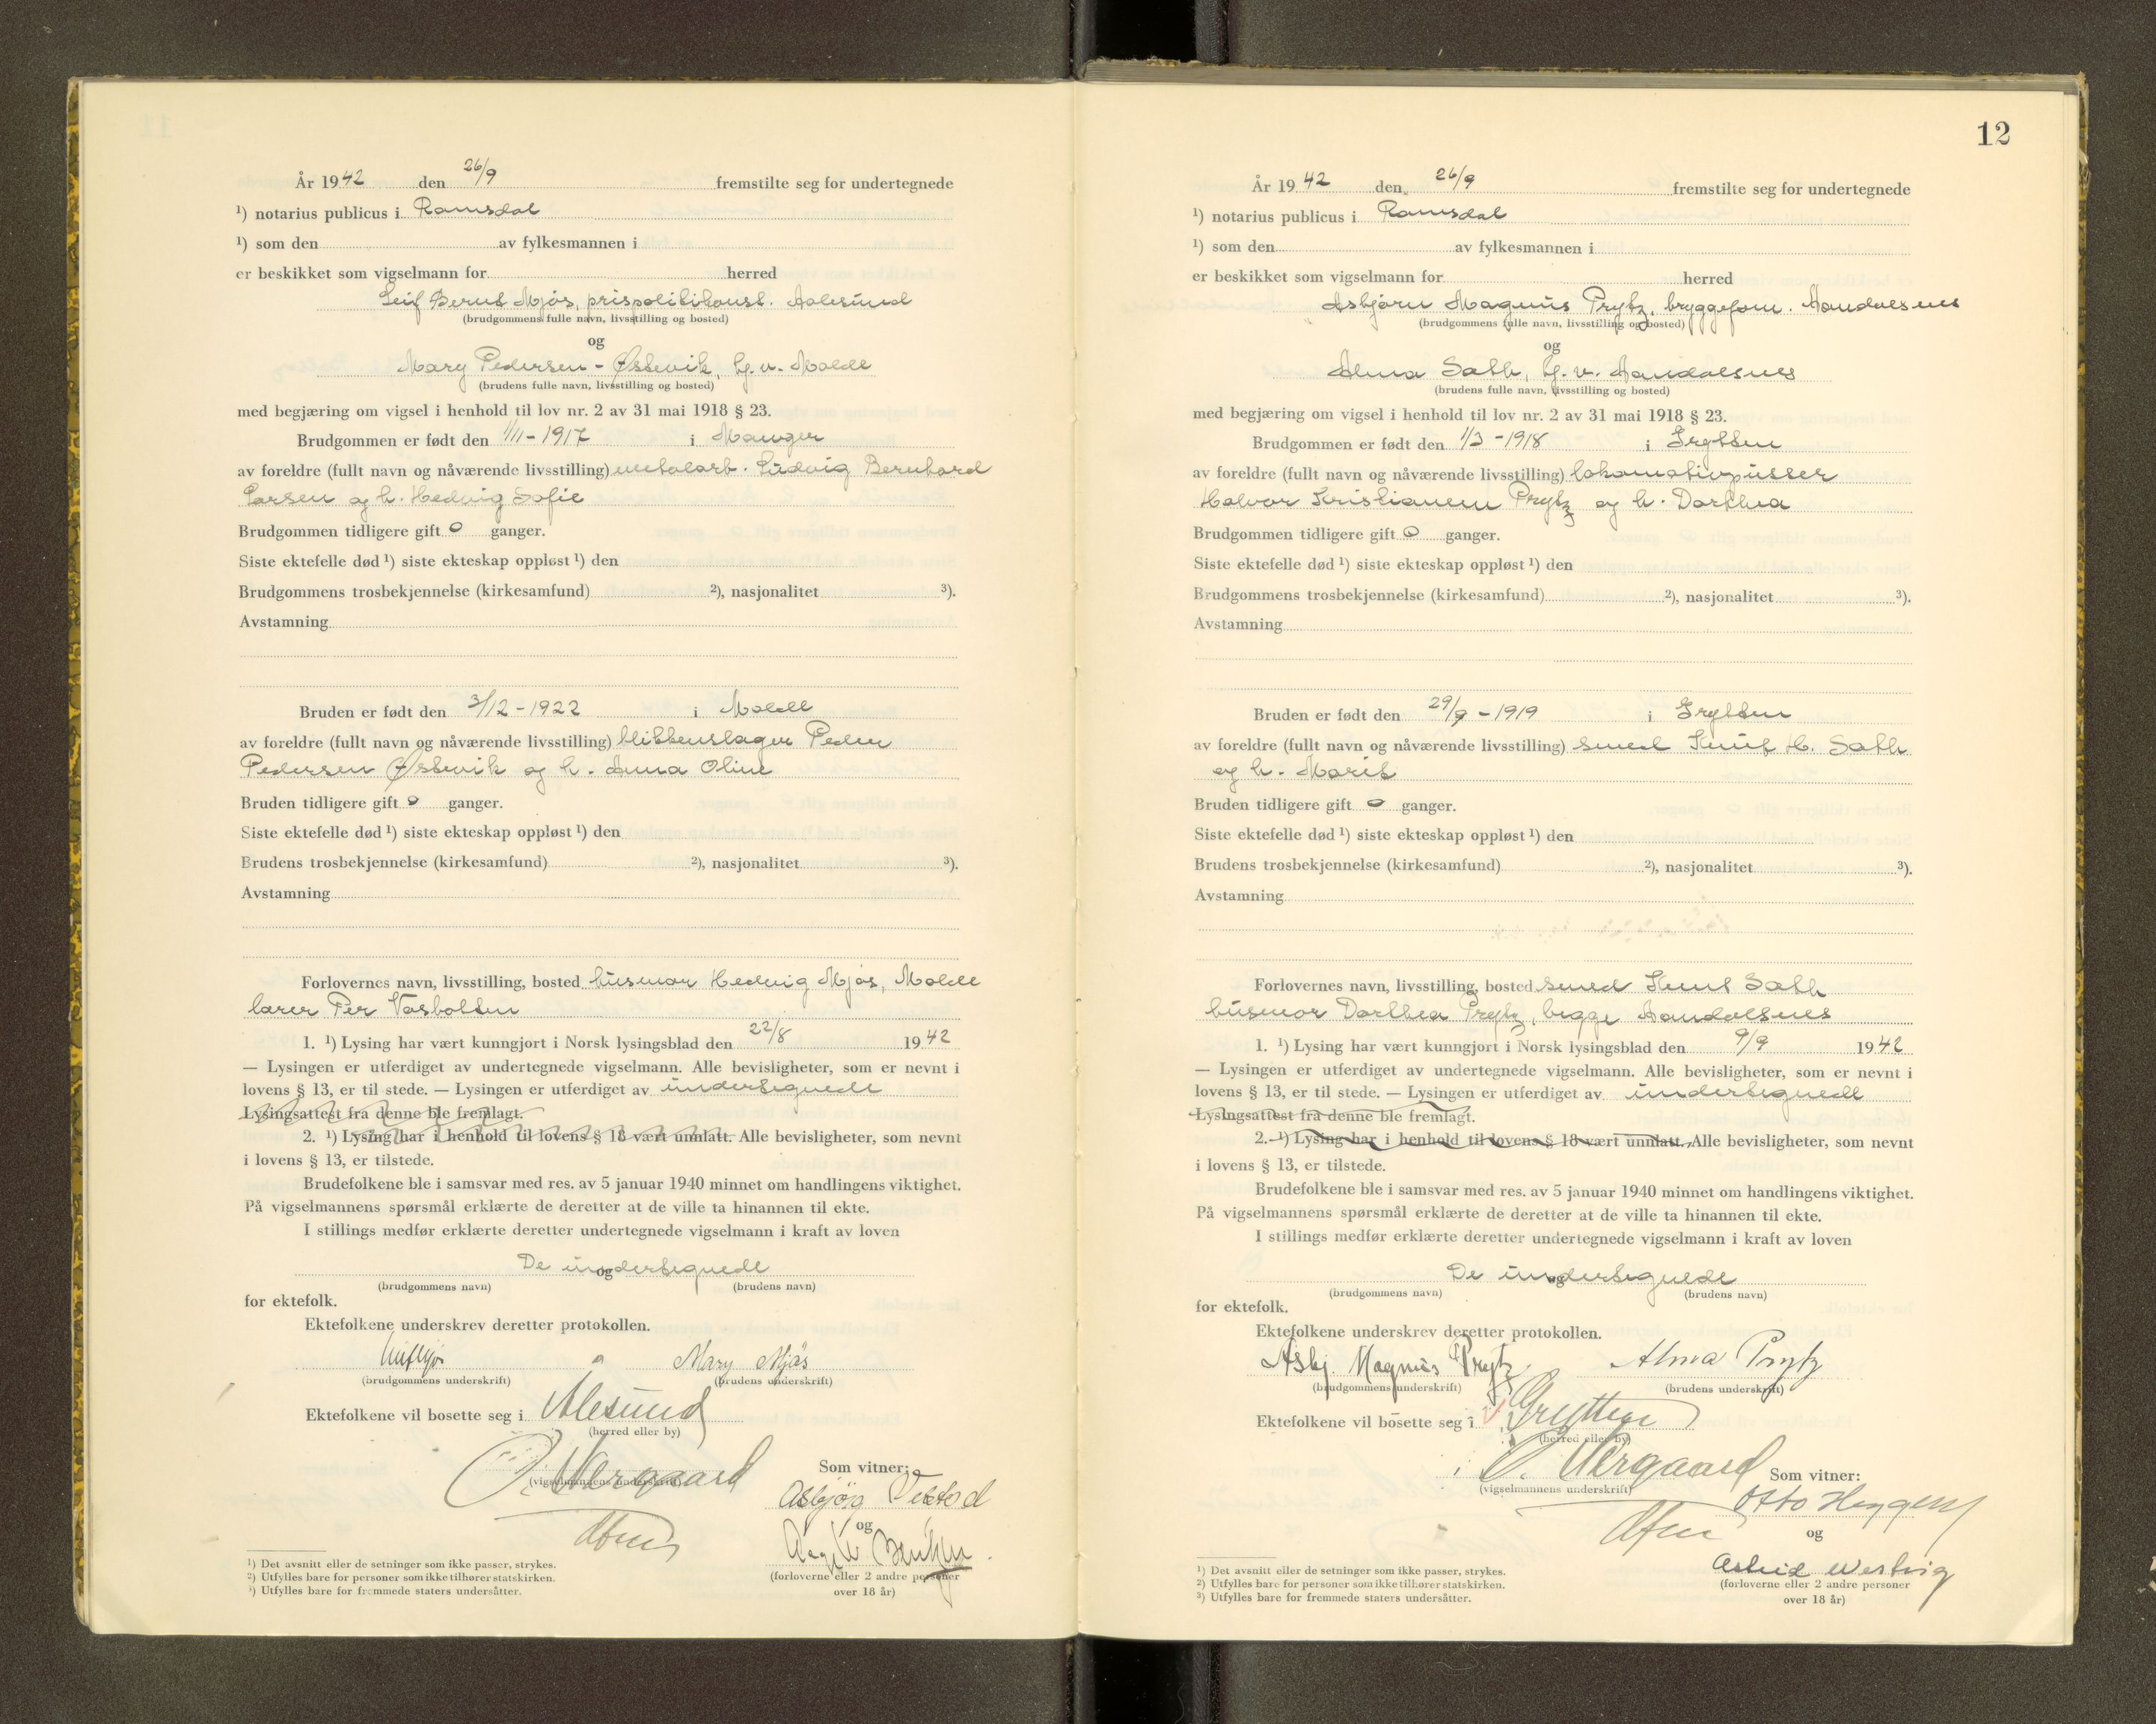 År 1942 den 26/9 fremstilte seg for undertegnede
¹) notarius publicus i Romsdal
¹) som den av fylkesmannen i
er beskikket som vigselmann for herred
Leif Bernt Mjøs, prispolitikonst. Aalesund
(brudgommens fulle navn, livsstilling og bosted)
og
Mary Pedersen - Østevik, h.v. Molde
(brudens fulle navn, livsstilling og bosted)
med begjæring om vigsel i henhold til lov nr. 2 av 31 mai 1918 § 23.
Brudgommen er født den 1/11 - 1917 i Manger
av foreldre (fullt navn og nåværende livsstilling) metalarb. Ludvig Bernhard
Larsen og h. Hedvig Sofie
Brudgommen tidligere gift 0 ganger.
Siste ektefelle død ¹) siste ekteskap oppløst ¹) den
Brudgommens trosbekjennelse (kirkesamfund) ²), nasjonalitet ³).
Avstamning
Bruden er født den 3/12 - 1922 i Molde
av foreldre (fullt navn og nåværende livsstilling) blikkenslager Peder
Pedersen Østevik og h. Anna Oline
Bruden tidligere gift 0 ganger.
Siste ektefelle død ¹) siste ekteskap oppløst ¹) den
Brudens trosbekjennelse (kirkesamfund) ²), nasjonalitet ³).
Avstamning
Forlovernes navn, livsstilling, bosted husmor Hedvig Mjøs, Molde
lærer Per Vasbotten
1. ¹) Lysing har vært kunngjort i Norsk lysingsblad den 22/8 1942
— Lysingen er utferdiget av undertegnede vigselmann. Alle bevisligheter, som er nevnt i
lovens § 13, er til stede. — Lysingen er utferdiget av undertegnede
Lysingsattest fra denne ble fremlagt.
2. ¹) Lysing har i henhold til lovens § 18 vært unnlatt. Alle bevisligheter, som nevnt
i lovens § 13, er tilstede.
Brudefolkene ble i samsvar med res. av 5 januar 1940 minnet om handlingens viktighet.
På vigselmannens spørsmål erklærte de deretter at de ville ta hinannen til ekte.
I stillings medfør erklærte deretter undertegnede vigselmann i kraft av loven
De undertegnede
og
(brudgommens navn) (brudens navn)
for ektefolk.
Ektefolkene underskrev deretter protokollen.
Mary Mjøs
(brudgommens underskrift) (brudens underskrift)
Ektefolkene vil bosette seg i Ålesund
(herred eller by)
O. Nergaard
(vigselmannens underskrift)
Som vitner:
Asbjørg Vestad
og
(forloverne eller 2 andre personer
over 18 år)
¹) Det avsnitt eller de setninger som ikke passer, strykes.
²) Utfylles bare for personer som ikke tilhører statskirken.
³) Utfylles bare for fremmede staters undersåtter.
12
År 1942 den 26/9 fremstilte seg for undertegnede
¹) notarius publicus i Romsdal
¹) som den av fylkesmannen i
er beskikket som vigselmann for herred
Asbjørn Magnus Prytz, bryggeform. Aandalsnes
(brudgommens fulle navn, livsstilling og bosted)
og
Alma Sæth, h.v. Aandalsnes
(brudens fulle navn, livsstilling og bosted)
med begjæring om vigsel i henhold til lov nr. 2 av 31 mai 1918 § 23.
Brudgommen er født den 1/3 - 1918 i Grytten
av foreldre (fullt navn og nåværende livsstilling) lokomotivpusser
Halvor Kristiannem Prytz og h. Dorthea
Brudgommen tidligere gift 0 ganger.
Siste ektefelle død ¹) siste ekteskap oppløst ¹) den
Brudgommens trosbekjennelse (kirkesamfund) ²), nasjonalitet ³).
Avstamning
Bruden er født den 29/9 - 1919 i Grytten
av foreldre (fullt navn og nåværende livsstilling) smed Knut H. Sæth
og h. Marit
Bruden tidligere gift 0 ganger.
Siste ektefelle død ¹) siste ekteskap oppløst ¹) den
Brudens trosbekjennelse (kirkesamfund) ²), nasjonalitet ³).
Avstamning
Forlovernes navn, livsstilling, bosted smed Knut Sæth
husmor Dorthea Prytz, begge Aandalsnes
1. ¹) Lysing har vært kunngjort i Norsk lysingsblad den 9/9 1942
— Lysingen er utferdiget av undertegnede vigselmann. Alle bevisligheter, som er nevnt i
lovens § 13, er til stede. — Lysingen er utferdiget av undertegnede
Lysingsattest fra denne ble fremlagt.
2. ¹) Lysing har i henhold til lovens § 18 vært unnlatt. Alle bevisligheter, som nevnt
i lovens § 13, er tilstede.
Brudefolkene ble i samsvar med res. av 5 januar 1940 minnet om handlingens viktighet.
På vigselmannens spørsmål erklærte de deretter at de ville ta hinannen til ekte.
I stillings medfør erklærte deretter undertegnede vigselmann i kraft av loven
De undertegnede
og
(brudgommens navn) (brudens navn)
for ektefolk.
Ektefolkene underskrev deretter protokollen.
Asbj. Magnus Prytz Alma Prytz
(brudgommens underskrift) (brudens underskrift)
Ektefolkene vil bosette seg i Grytten
(herred eller by)
O. Nergaard
(vigselmannens underskrift)
Som vitner:
Otto Heggem
og
Astrid Westvig
(forloverne eller 2 andre personer
over 18 år)
¹) Det avsnitt eller de setninger som ikke passer, strykes.
²) Utfylles bare for personer som ikke tilhører statskirken.
³) Utfylles bare for fremmede staters undersåtter.